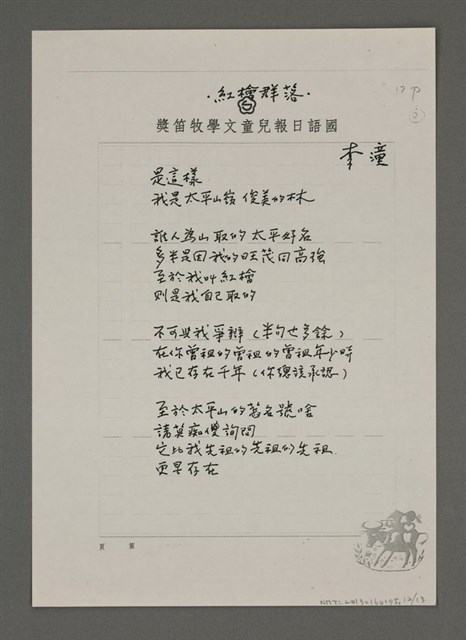 ·紅檜群落·
國語日報兒童文學牧笛獎
17P
李潼
是這樣
我是太平山 俊美的林
誰人為山取的太平好名
多半是因我的旺茂同高強
至於我叫紅檜
則是我自己取的
不可與我爭辯（半句也多餘）
在你曾祖的曾祖的曾祖年少時
我已存在千年（你總該承認）
至於太平山的舊名號啥
請莫痴傻詢問
它比我先祖的先祖的先祖
更早存在
第 頁
NMTL20130160195, 12/13